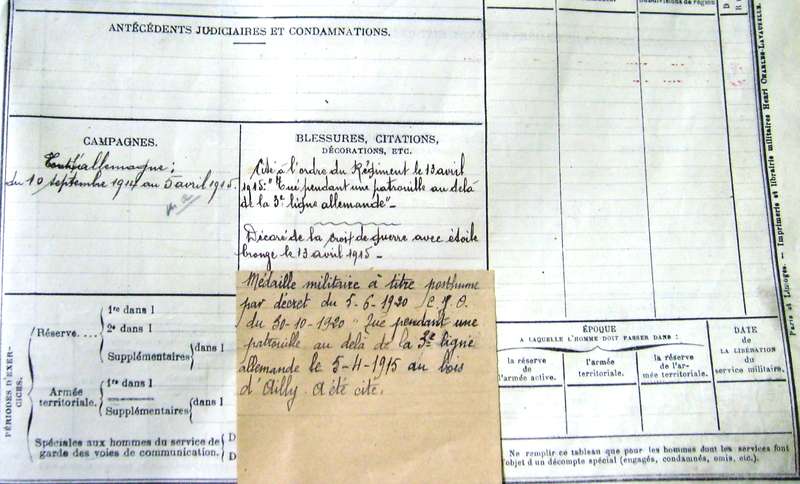 Subdivisions de région
ANTÉCÉDENTS JUDICIAIRES ET CONDAMNATIONS.
CAMPAGNES.
allemagne:
du 10 septembre 1914 au 5 avril 1915.
BLESSURES, CITATIONS,
DÉCORATIONS, ETC.
Cité à l'ordre du Régiment le 13 avril
1915: "Tué pendant une patrouille au delà
de la 3e ligne allemande"-
Décoré de la croix de guerre avec étoile
bronze le 13 avril 1915 -
Médaille militaire à titre posthume
par decret du 5-6-1920 J.O.
du 30-10-1920 " Tué pendant une
patrouille au delà de la 3e ligne
allemande le 5-4-1915 au bois
d'Ailly. A été cité.
PÉRIODES D'EXERCICES.
Réserve....
1re dans l
2e dans l
Supplémentaires
dans l
Armée
territoriale.
1re dans l
Supplémentaires
dans l
Spéciales aux hommes du service de
garde des voies de communication.
D
D
ÉPOQUE
A LAQUELLE L'HOMME DOIT PASSER DANS :
la réserve
de
l'armée active.
l'armée
territoriale.
la réserve
de l'ar-
mée territoriale.
DATE
de
LA LIBÉRATION
du
service militaire.
Ne remplir ce tableau que pour les hommes dont les services font
l'objet d'un décompte spécial (engagés, condamnés, omis, etc.)
Paris et Limoges. — Imprimerie et librairie militaires Henri CHARLES-LAVAUZELLE.